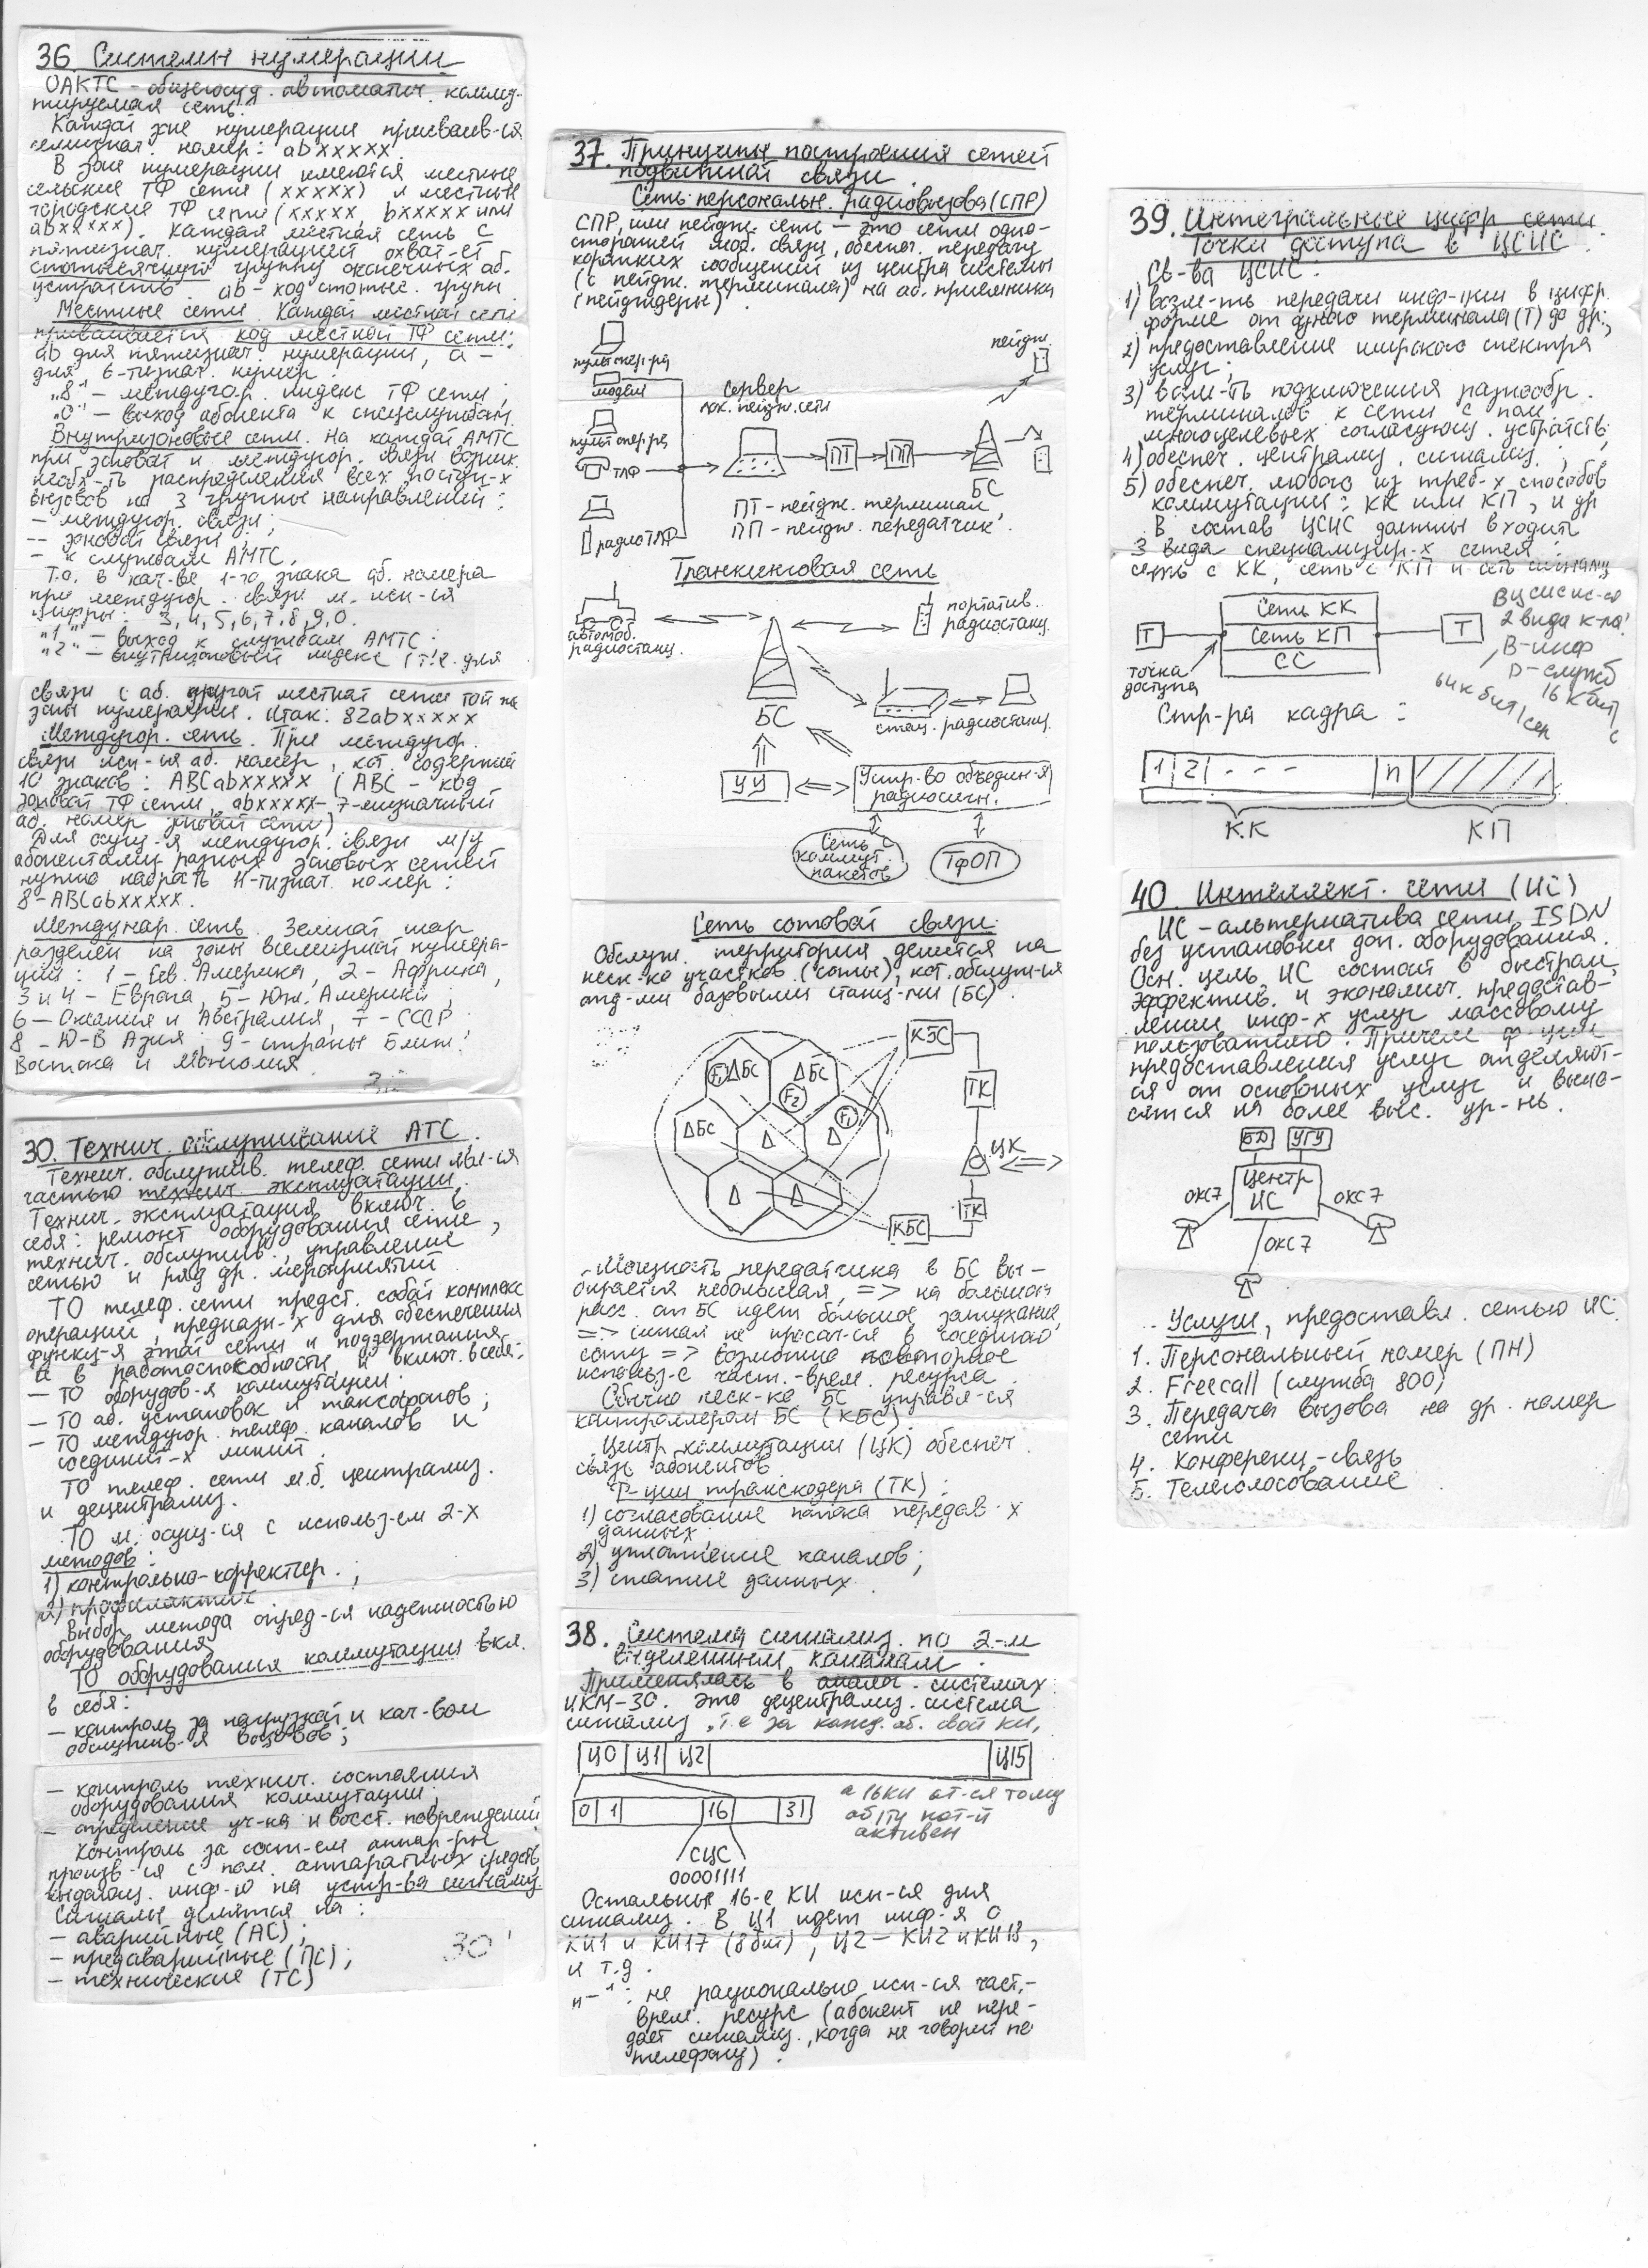 36. Системы нумерации
ОАКТС – общегосуд. автоматич. коммутируемая сеть.
Каждой зоне нумерации присваив-ся
семизнач. номер: abxxxxx.
В зоне нумерации имеются местные
сельские ТФ сети (xxxxx) и местные
городские ТФ сети (xxxxx, bxxxxx или
abxxxxx). Каждая местная сеть с
пятизнач. нумерацией охват-ет
стотысячную группу оконечных аб.
устройств. ab – код стотыс. групы
Местные сети. Каждой местной сети
присваивается код местной ТФ сети:
ab для пятизнач. нумерации, a –
для 6-тизнач. нумер.
„8" – междугор. индекс ТФ сети;
„0" – выход абонента к спецслужбам.
Внутризоновые сети. На каждой АМТС
при зоновой и междугор. связи возник.
необх-ть распределения всех поступ-х
вызовов на 3 группы направлений:
– междугор. связи;
– зоновой связи;
– к службам АМТС.
Т.о. в кач-ве 1-го знака аб. номера
при междугор. связи м. исп-ся
цифры: 3,4,5,6,7,8,9,0.
„1" – выход к службам АМТС;
„2" – внутризоновый индекс (т.е. для
связи с аб. другой местной сети той же
зоны нумерации. Итак: 82abxxxxx
Междугор. сеть. При междугор.
связи исп-ся аб. номер, кот. содержит
10 знаков: ABCabxxxxx (ABC – код
зоновой ТФ сети, abxxxxx – 7-мизначный
аб. номер зоновой сети)
Для осущ-я междугор. связи м/у
абонентами разных зоновых сетей
нужно набрать 11-тизнач. номер:
8-ABCabxxxxx.
Междунар. сеть. Земной шар
разделен на зоны всемирной нумера-
ции: 1 – Сев. Америка, 2 – Африка,
3 и 4 – Европа, 5 – Юж. Америка;
6 – Океания и Австралия, 7 – СССР
8 – Ю-В Азия, 9 – страны Ближ.
Востока и Монголия.
30. Технич. обслуживание АТС.
Технич. обслужив. телеф. сети явл-ся
частью технич. эксплуатации.
Технич. эксплуатация включ. в
себя: ремонт оборудования сети,
технич. обслужив., управление
сетью и ряд др. мероприятий
ТО телеф. сети предст. собой комплекс
операций, предназн-х для обеспечения
функц-я этой сети и поддержания
её в работоспособности, и включ. в себя:
– ТО оборудов-я коммутации;
– ТО аб. установок и таксофонов;
– ТО междугор. телеф. каналов и
соединит-х линий.
ТО телеф. сети м.б. централиз.
и децентрализ.
ТО м. осущ-ся с использ-ем 2-х
методов:
1) контрольно-корректир.;
2) профилактич.
Выбор метода опред-ся надежностью
оборудования
ТО оборудования коммутации вкл.
в себя:
– контроль за нагрузкой и кач-вом
обслужив-я вызовов;
– контроль технич. состояния
оборудования коммутации;
– определение уч-ка и восст. повреждений
Контроль за сост-ем аппар-ры
произв-ся с пом. аппаратных средств,
выдающ. инф-ю на устр-ва сигнализ.
Сигналы делятся на:
– аварийные (АС);
– предаварийные (ПС);
– технические (ТС)
30
37. Принципы построения сетей
подвижной связи.
Сеть персональн. радиовызова (СПР)
СПР, или пейдж. сеть – это сети одно-
сторонней моб. связи, обеспеч. передачу
коротких сообщений из центра системы
(с пейдж. терминала) на аб. приемника
(пейджеры).
пульт опер-ра
модем
пульт опер-ра
ТЛФ
радиоТЛФ
сервер
лок. пейдж. сети
ПТ
ПП
БС
пейдж.
ПТ – пейдж. терминал,
ПП – пейдж. передатчик.
Транкинговая сеть
автомоб.
радиостанц.
портатив.
радиостанц.
БС
стац. радиостанц.
УУ
Устр-во объедин-я
радиосигн.
Сеть с
коммут.
пакетов
ТфОП
Сеть сотовой связи.
Обслуж. территория делится на
неск-ко участков (соты), кот. обслуж-ся
отд-ми базовыми станц-ми (БС).
F1
БС
БС
F2
F1
БС
КБС
ТК
ЦК
ТК
КБС
Мощность передатчика в БС вы-
бирается небольшая, => на большом
расс. от БС идет большое затухание,
=> сигнал не просач-ся в соседнюю
соту => возможно повторное
использ-е част.-врем. ресурса.
Обычно неск-ко БС управл-ся
контроллером БС (КБС).
Центр коммутации (ЦК) обеспеч.
связь абонентов
Ф-ции транскодера (ТК):
1) согласование потока передав-х
данных
2) уплотнение каналов;
3) сжатие данных.
38. Система сигнализ. по 2-м
выделенным каналам.
Применялась в аналог. системах
ИКМ-30. Это децентрализ. система
сигнализ., т.е за кажд. аб. свой КИ,
Ц0 Ц1 Ц2 Ц15
0 1 16 31
а 16КИ от-ся тому
аб/ту кот-й
активен
СЦС
00001111
Остальные 16-е КИ исп-ся для
сигнализ. В Ц1 идет инф-я о
КИ1 и КИ17 (8бит), Ц2 – КИ2 и КИ18,
и т.д.
„–": не рационально исп-ся част.-
врем. ресурс (абонент не пере-
дает сигнализ., когда не говорит по
телефону).
39. Интегральные цифр сети.
Точки доступа в ЦСИС.
Св-ва ЦСИС:
1) возм-ть передачи инф-ции в цифр.
форме от одного терминала (Т) до др.;
2) предоставление широкого спектра
услуг;
3) возм-ть подключения разнообр.
терминалов к сети с пом.
многоцелевых согласующ. устройств;
4) обеспеч. централиз. сигнализ.;
5) обеспеч. любого из треб-х способов
коммутации: КК или КП, и др
В состав ЦСИС должны входить
3 вида специализир-х сетей:
сеть с КК, сеть с КП и сеть сигнализ
Т
Сеть КК
Сеть КП
СС
Т
точка
доступа
В ЦСИС ис-ся
2 вида к-ла:
B-инф
D-служб
64кбит/сек
16 Кбит/с
Стр-ра кадра:
1 2 - - - n
КК КП
40. Интеллект. сети (ИС)
ИС – альтернатива сети ISDN
без установки доп. оборудования.
Осн. цель ИС состоит в быстром,
эффектив. и экономич. предостав-
лении инф-х услуг массовому
пользователю. Причем ф-ции
предоставления услуг отделяют-
ся от основных услуг и выно-
сятся на более выс. ур-нь.
БД
УГУ
Центр
ИС
ОКС7
ОКС7
ОКС7
Услуги, предоставл. сетью ИС:
1. Персональный номер (ПН)
2. Freecall (служба 800)
3. Передача вызова на др. номер
сети
4. Конференц-связь
5. Телеголосование